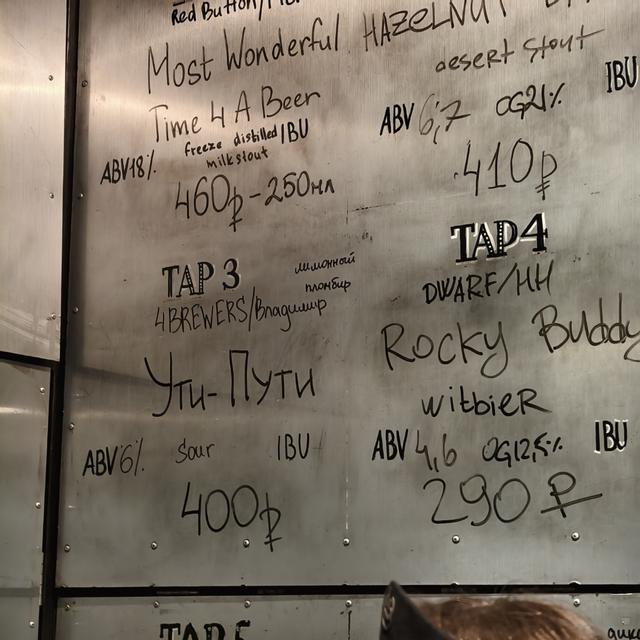 Red Button/
Most Wonderful
Time 4 A Beer
freeze distilled IBU
milk stout
ABV 18%
460₽-250мл
HAZELNUT
desert stout
ABV 6,7 OG21% IBU
410₽
TAP 3
лимонный
пломбир
4BREWERS/Владимир
Ути-Пути
ABV 6% Sour IBU
400₽
TAP 4
DWARF/НН
Rocky Buddy
witbier
ABV 4,6 OG12,5% IBU
290₽
TAP 5